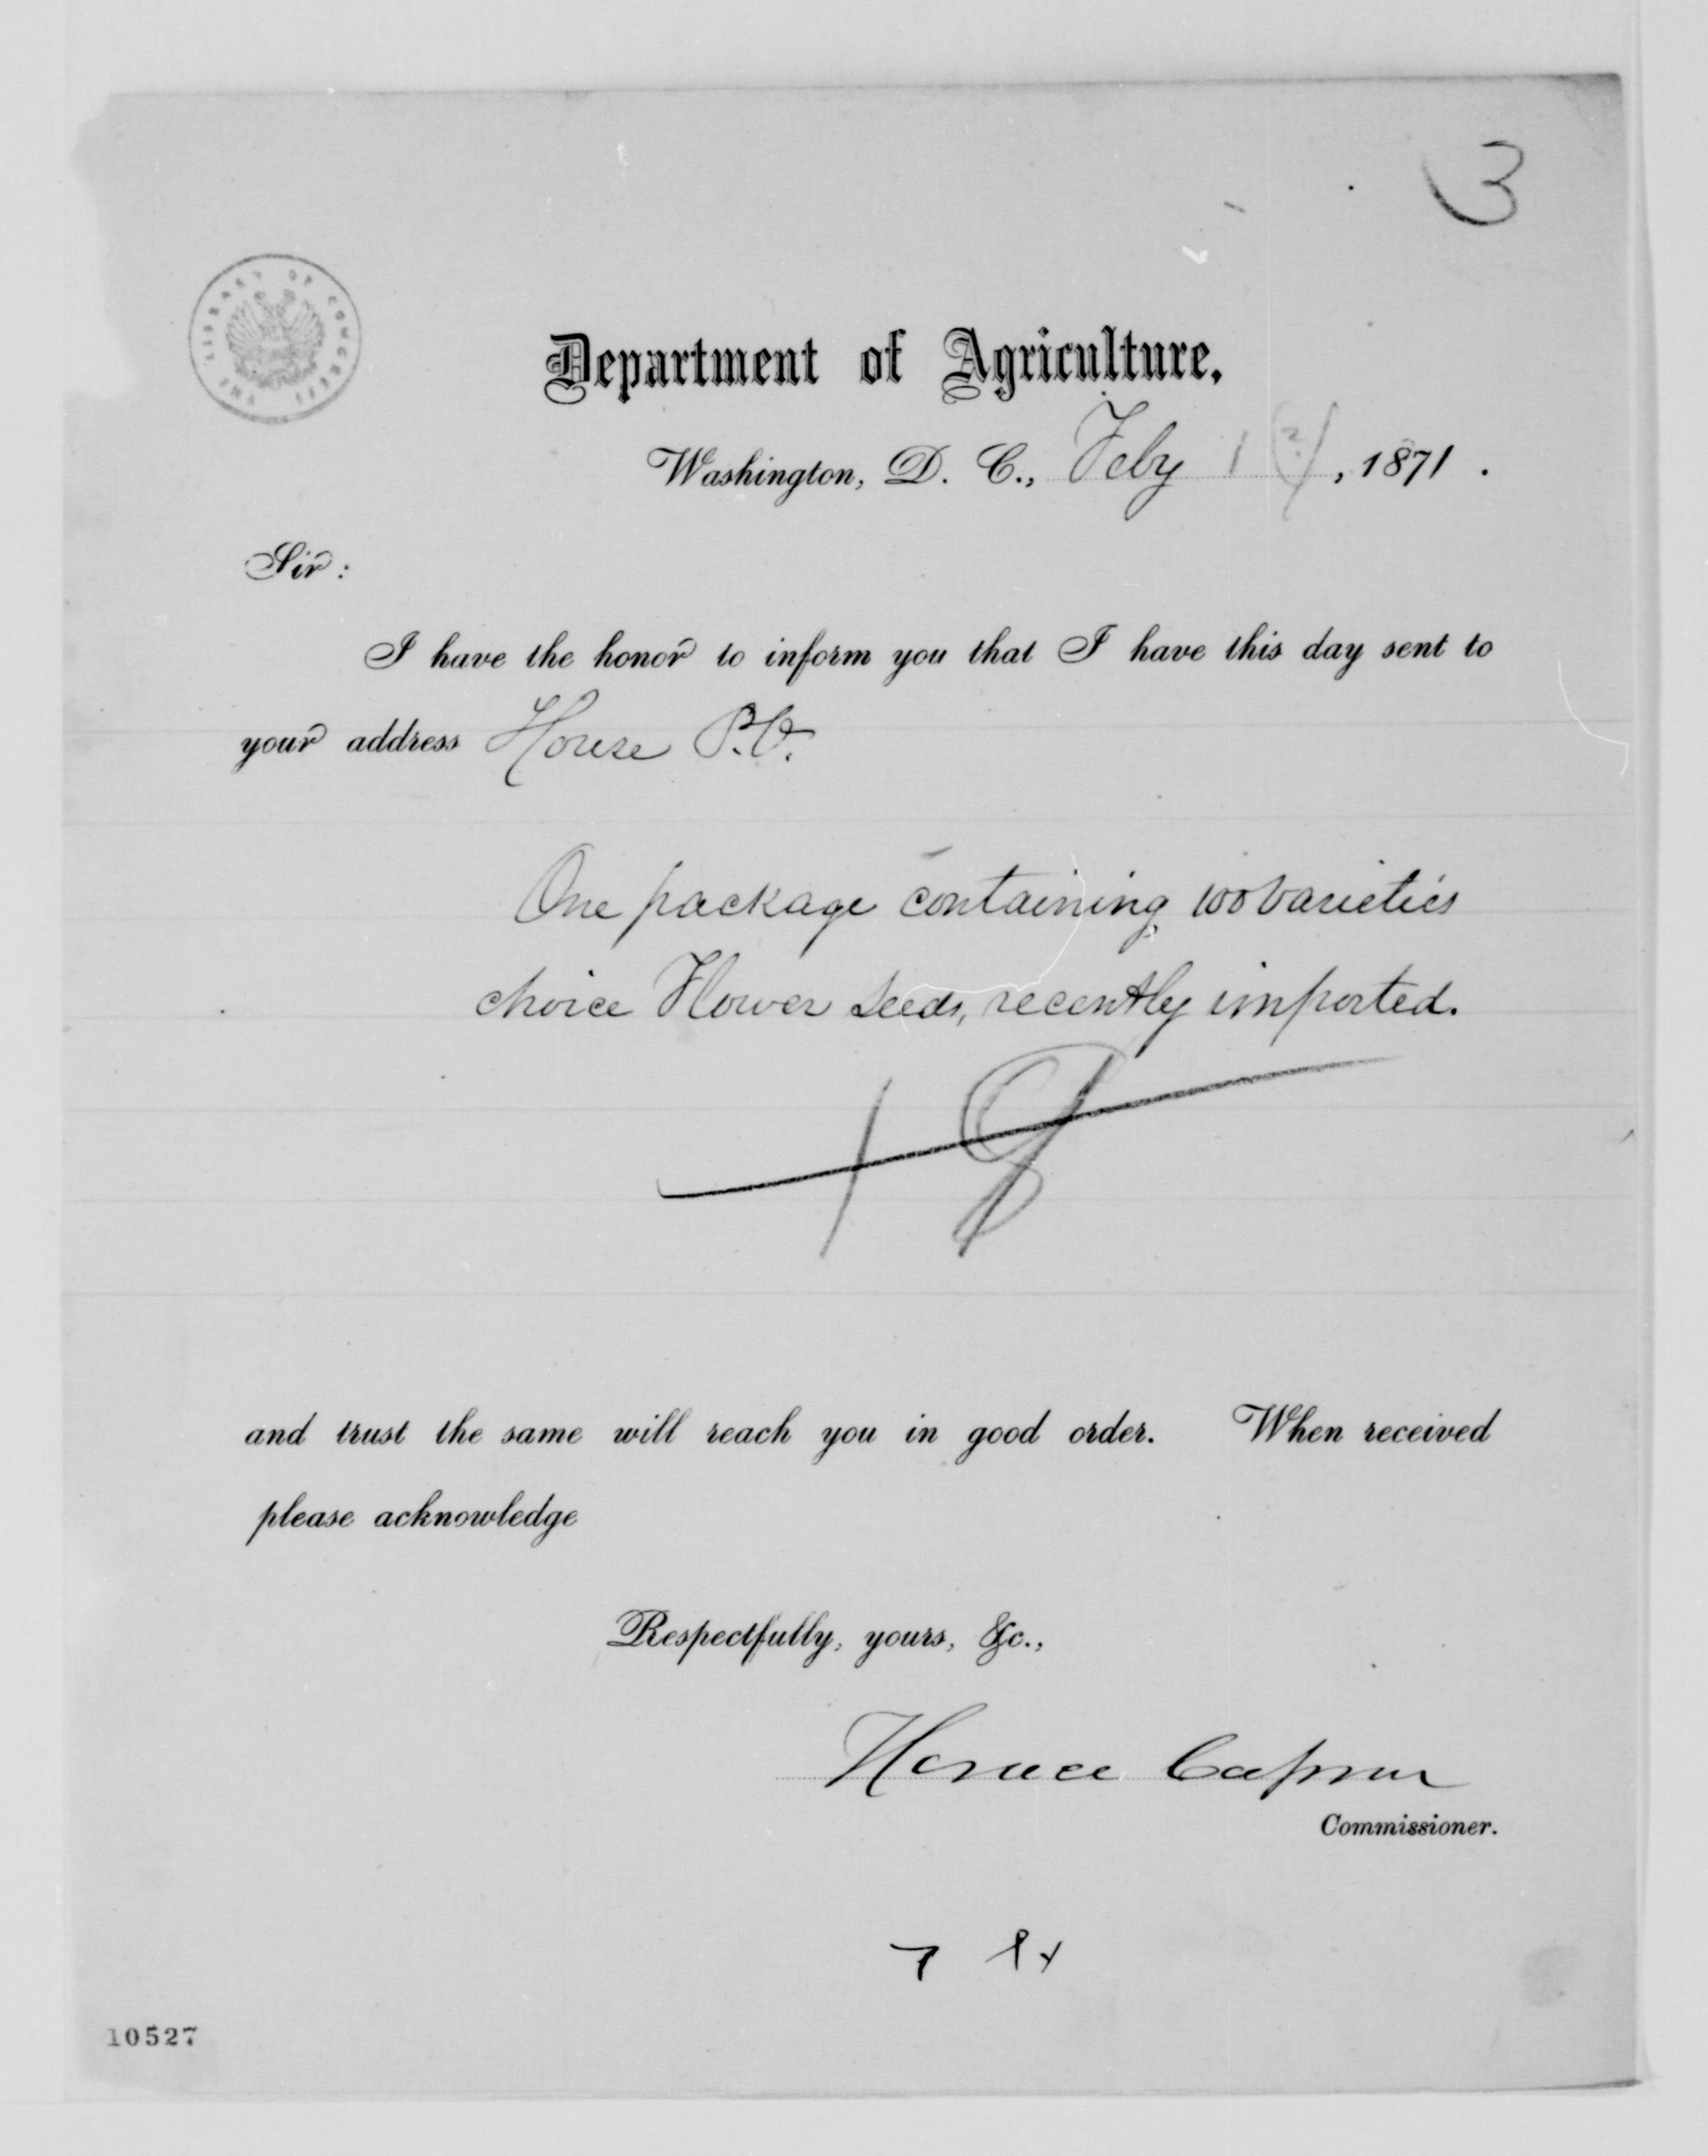 3
THE LIBRARY OF CONGRESS
Department of Agriculture,
Washington, D. C., Feby 1 (?), 1871.
Sir:
I have the honor to inform you that I have this day sent to
your address House P.O.
One package containing 100 varieties
choice Flower Seeds, recently imported.
and trust the same will reach you in good order. When received
please acknowledge
Respectfully, yours, &c.,
Horace Capron
Commissioner.
10527